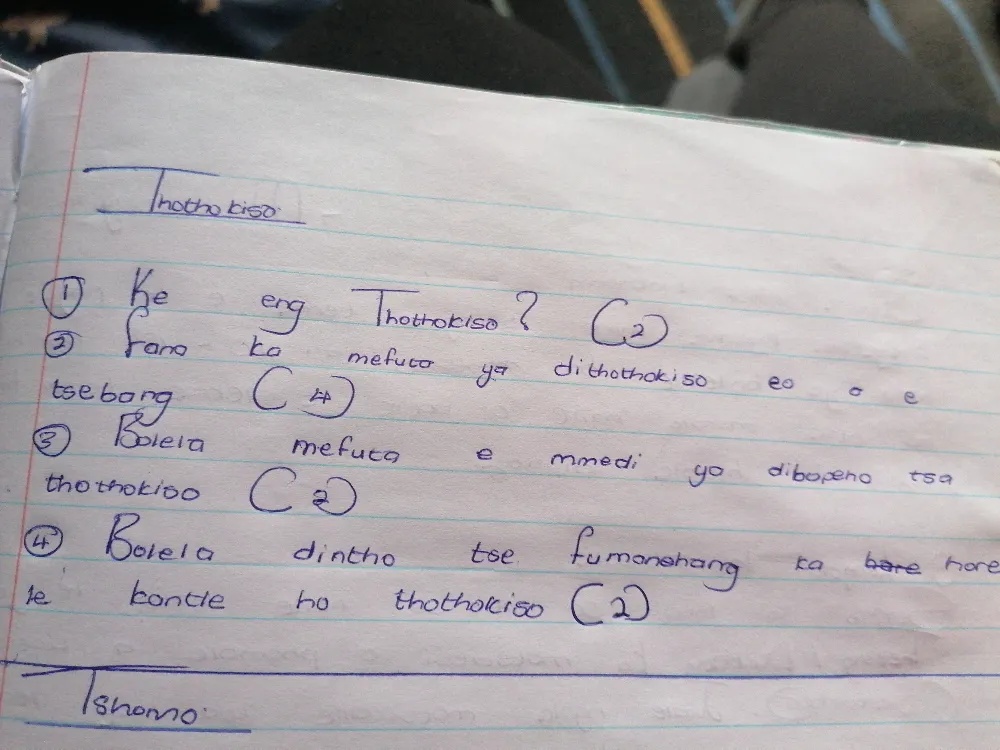 Thothokiso
① Ke eng Thothokiso? (2)
② Fano ka mefuta ya dithothokiso eo o e
tsebang (4)
③ Bolela mefuta e mmedi ya dibopeho tsa
thothokiso (2)
④ Bolela dintho tse fumanehang ka hare hore
le kantle ho thothokiso (2)
Tshomo